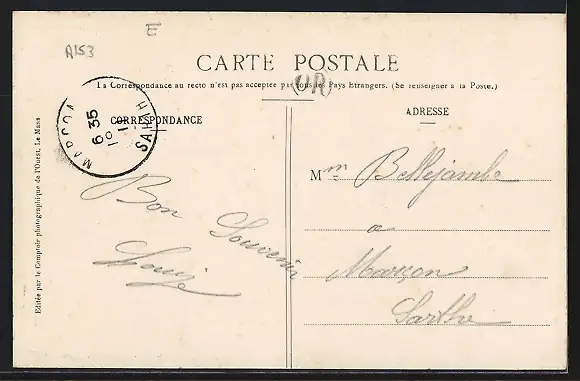 E
A153
CARTE POSTALE
La Correspondance au recto n'est pas acceptée par tous les Pays Etrangers. (Se renseigner à la Poste.)
OR
CORRESPONDANCE
ADRESSE
MARÇON
6 35
SARTHE
Bon Souvenir
Mme Bellejambe
a
Marçon
Sarthe
Editée par le Comptoir photographique de l'Ouest, Le Mans